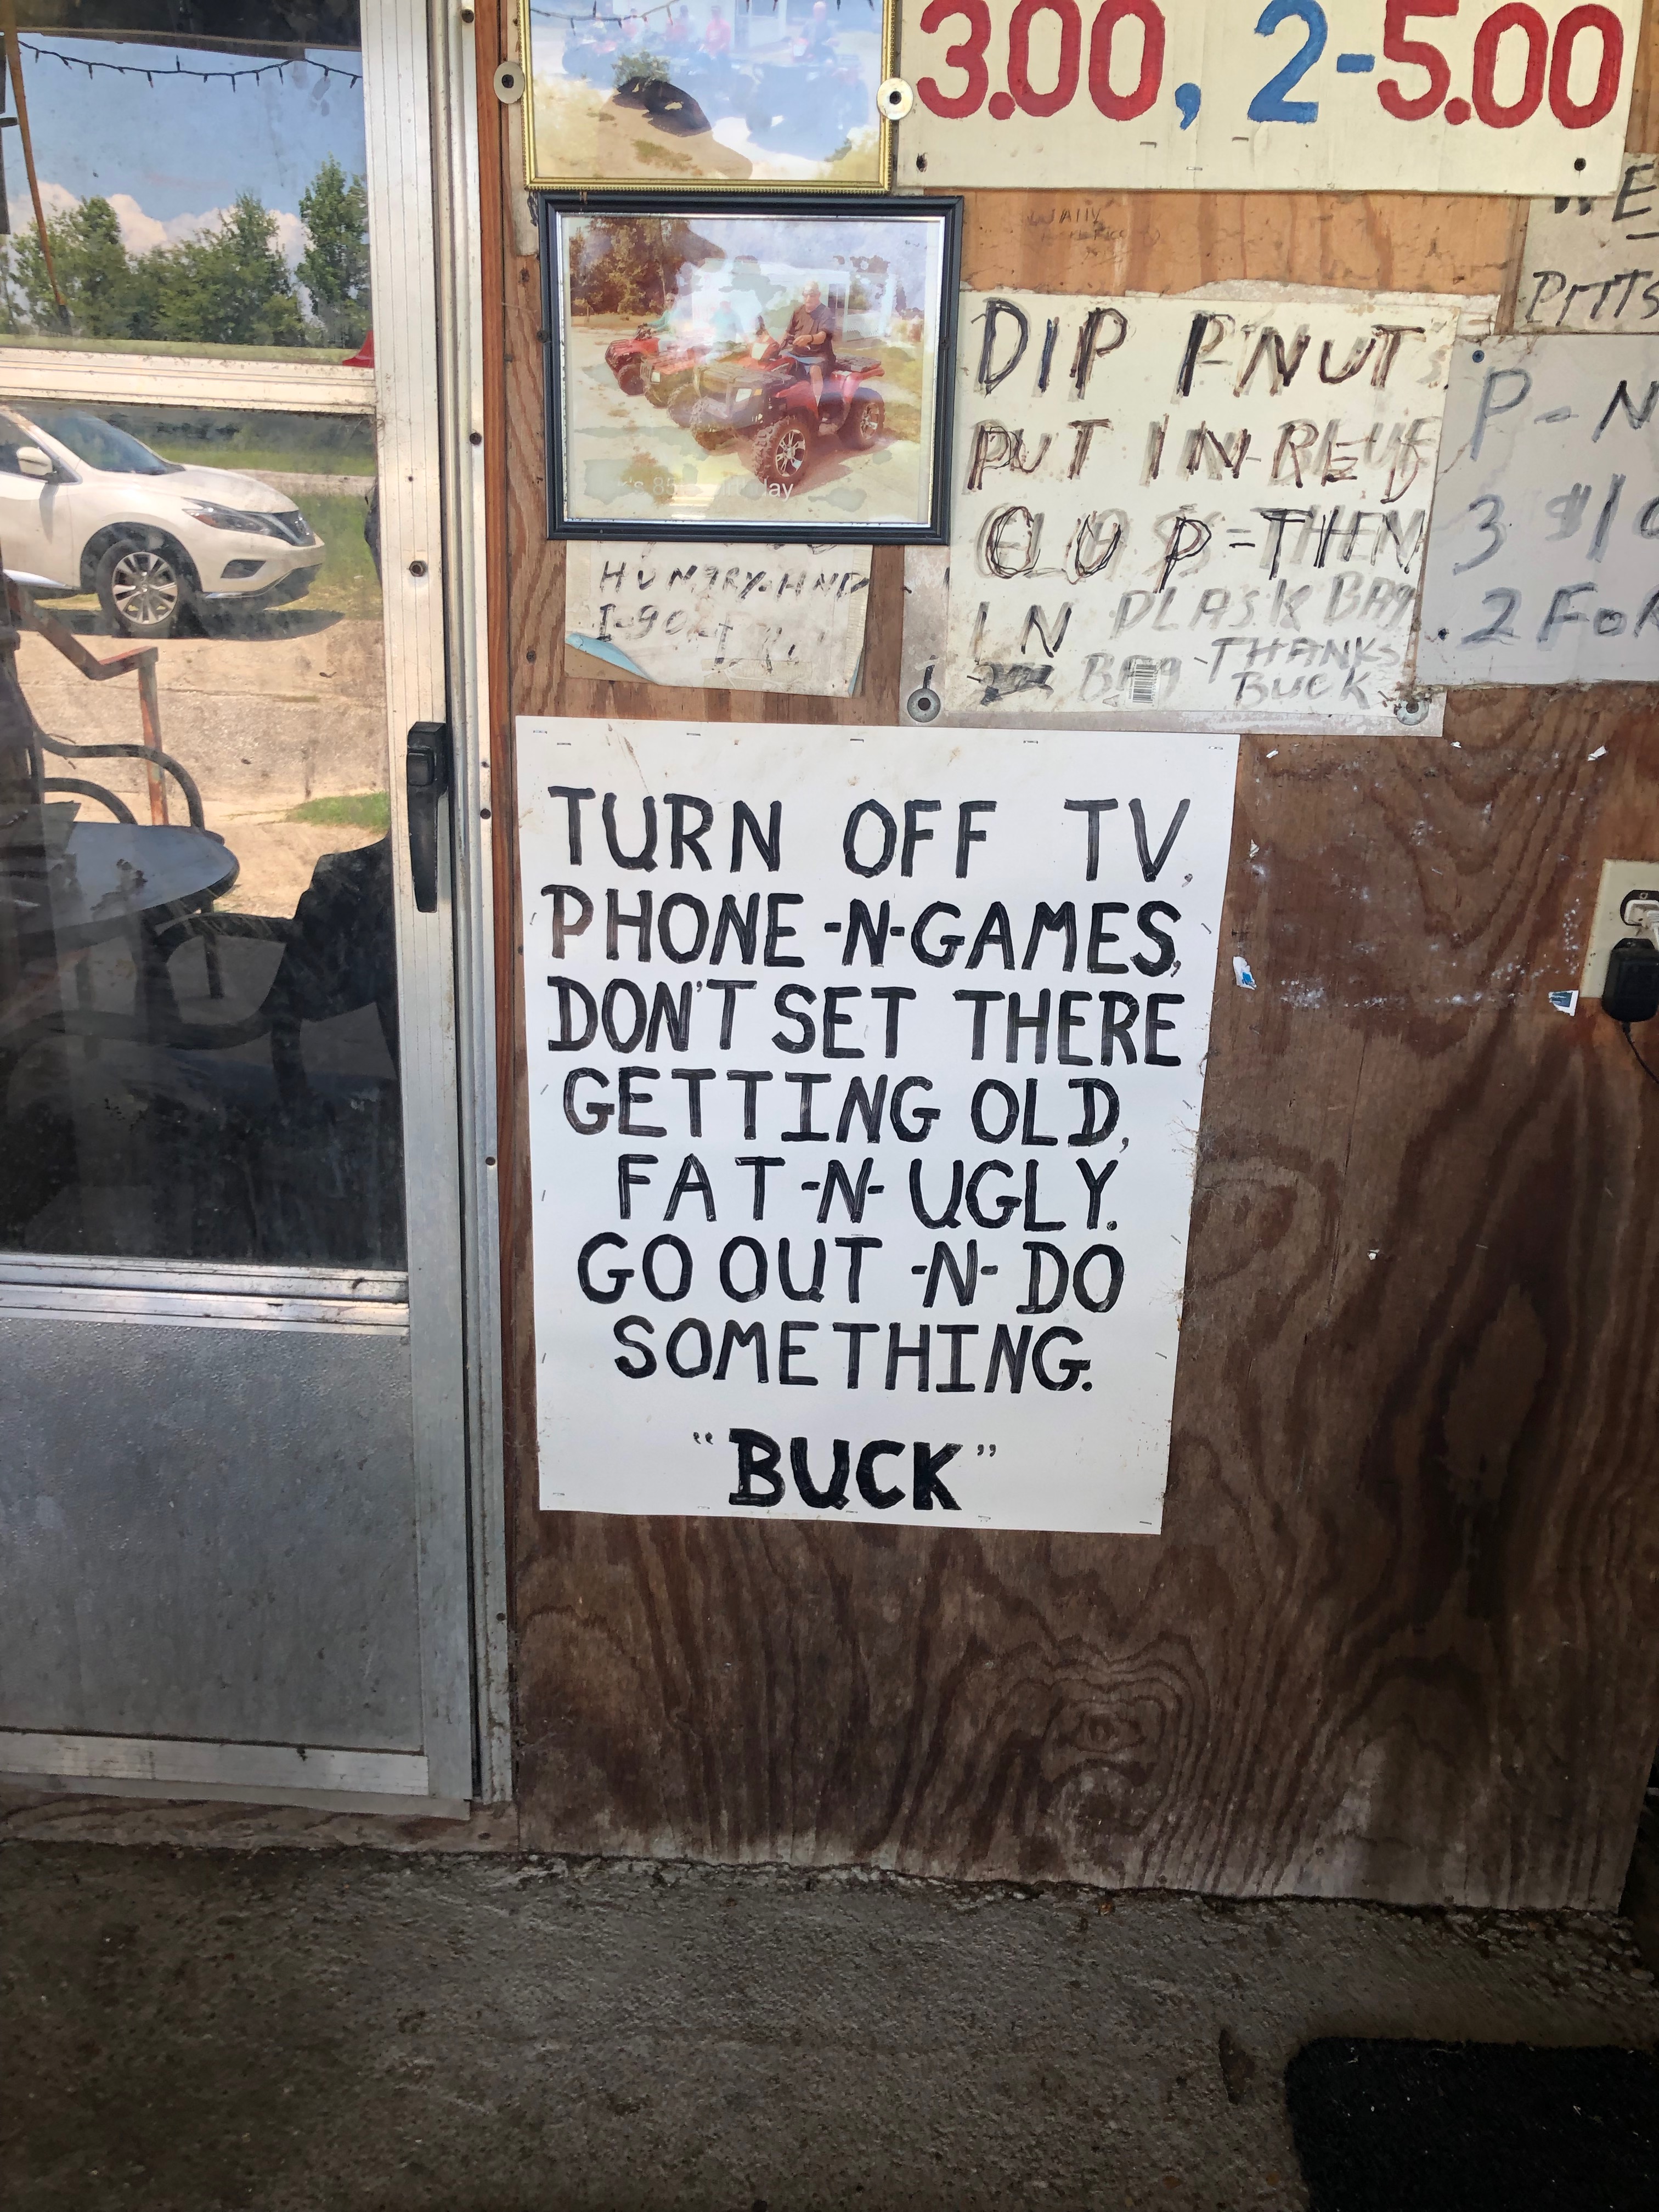 3.00, 2-5.00
DIP P'NUT
PUT IN-REUF
CUP=THEN
IN PLASK BAG
BAG -THANKS
BUCK
PITTS
P-N
3 $10
2 FOR
85 day
HUNGRY-HND
TURN OFF TV,
PHONE -N- GAMES,
DON'T SET THERE
GETTING OLD,
FAT -N- UGLY.
GO OUT -N- DO
SOMETHING.
"BUCK"